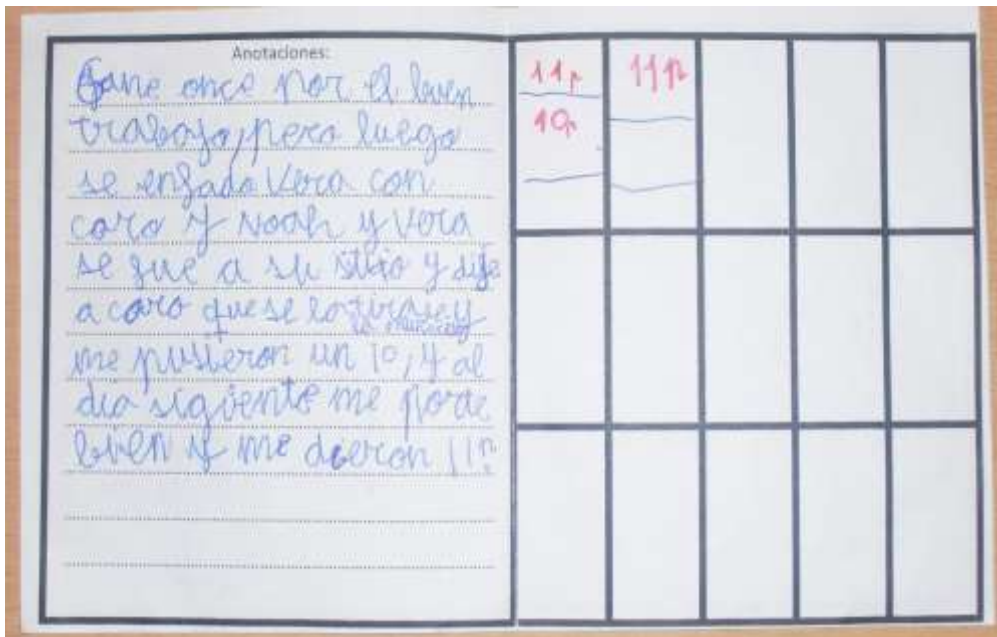 Anotaciones:
Gane once por el buen
trabajo, pero luego
se enfado Vera con
caro y Noah y Vera
se fue a su sitio y dije
a caro que se lo
me pusieron un 10, y al
dia siguiente me porte
bien y me dieron 11p
11p
10p
11p